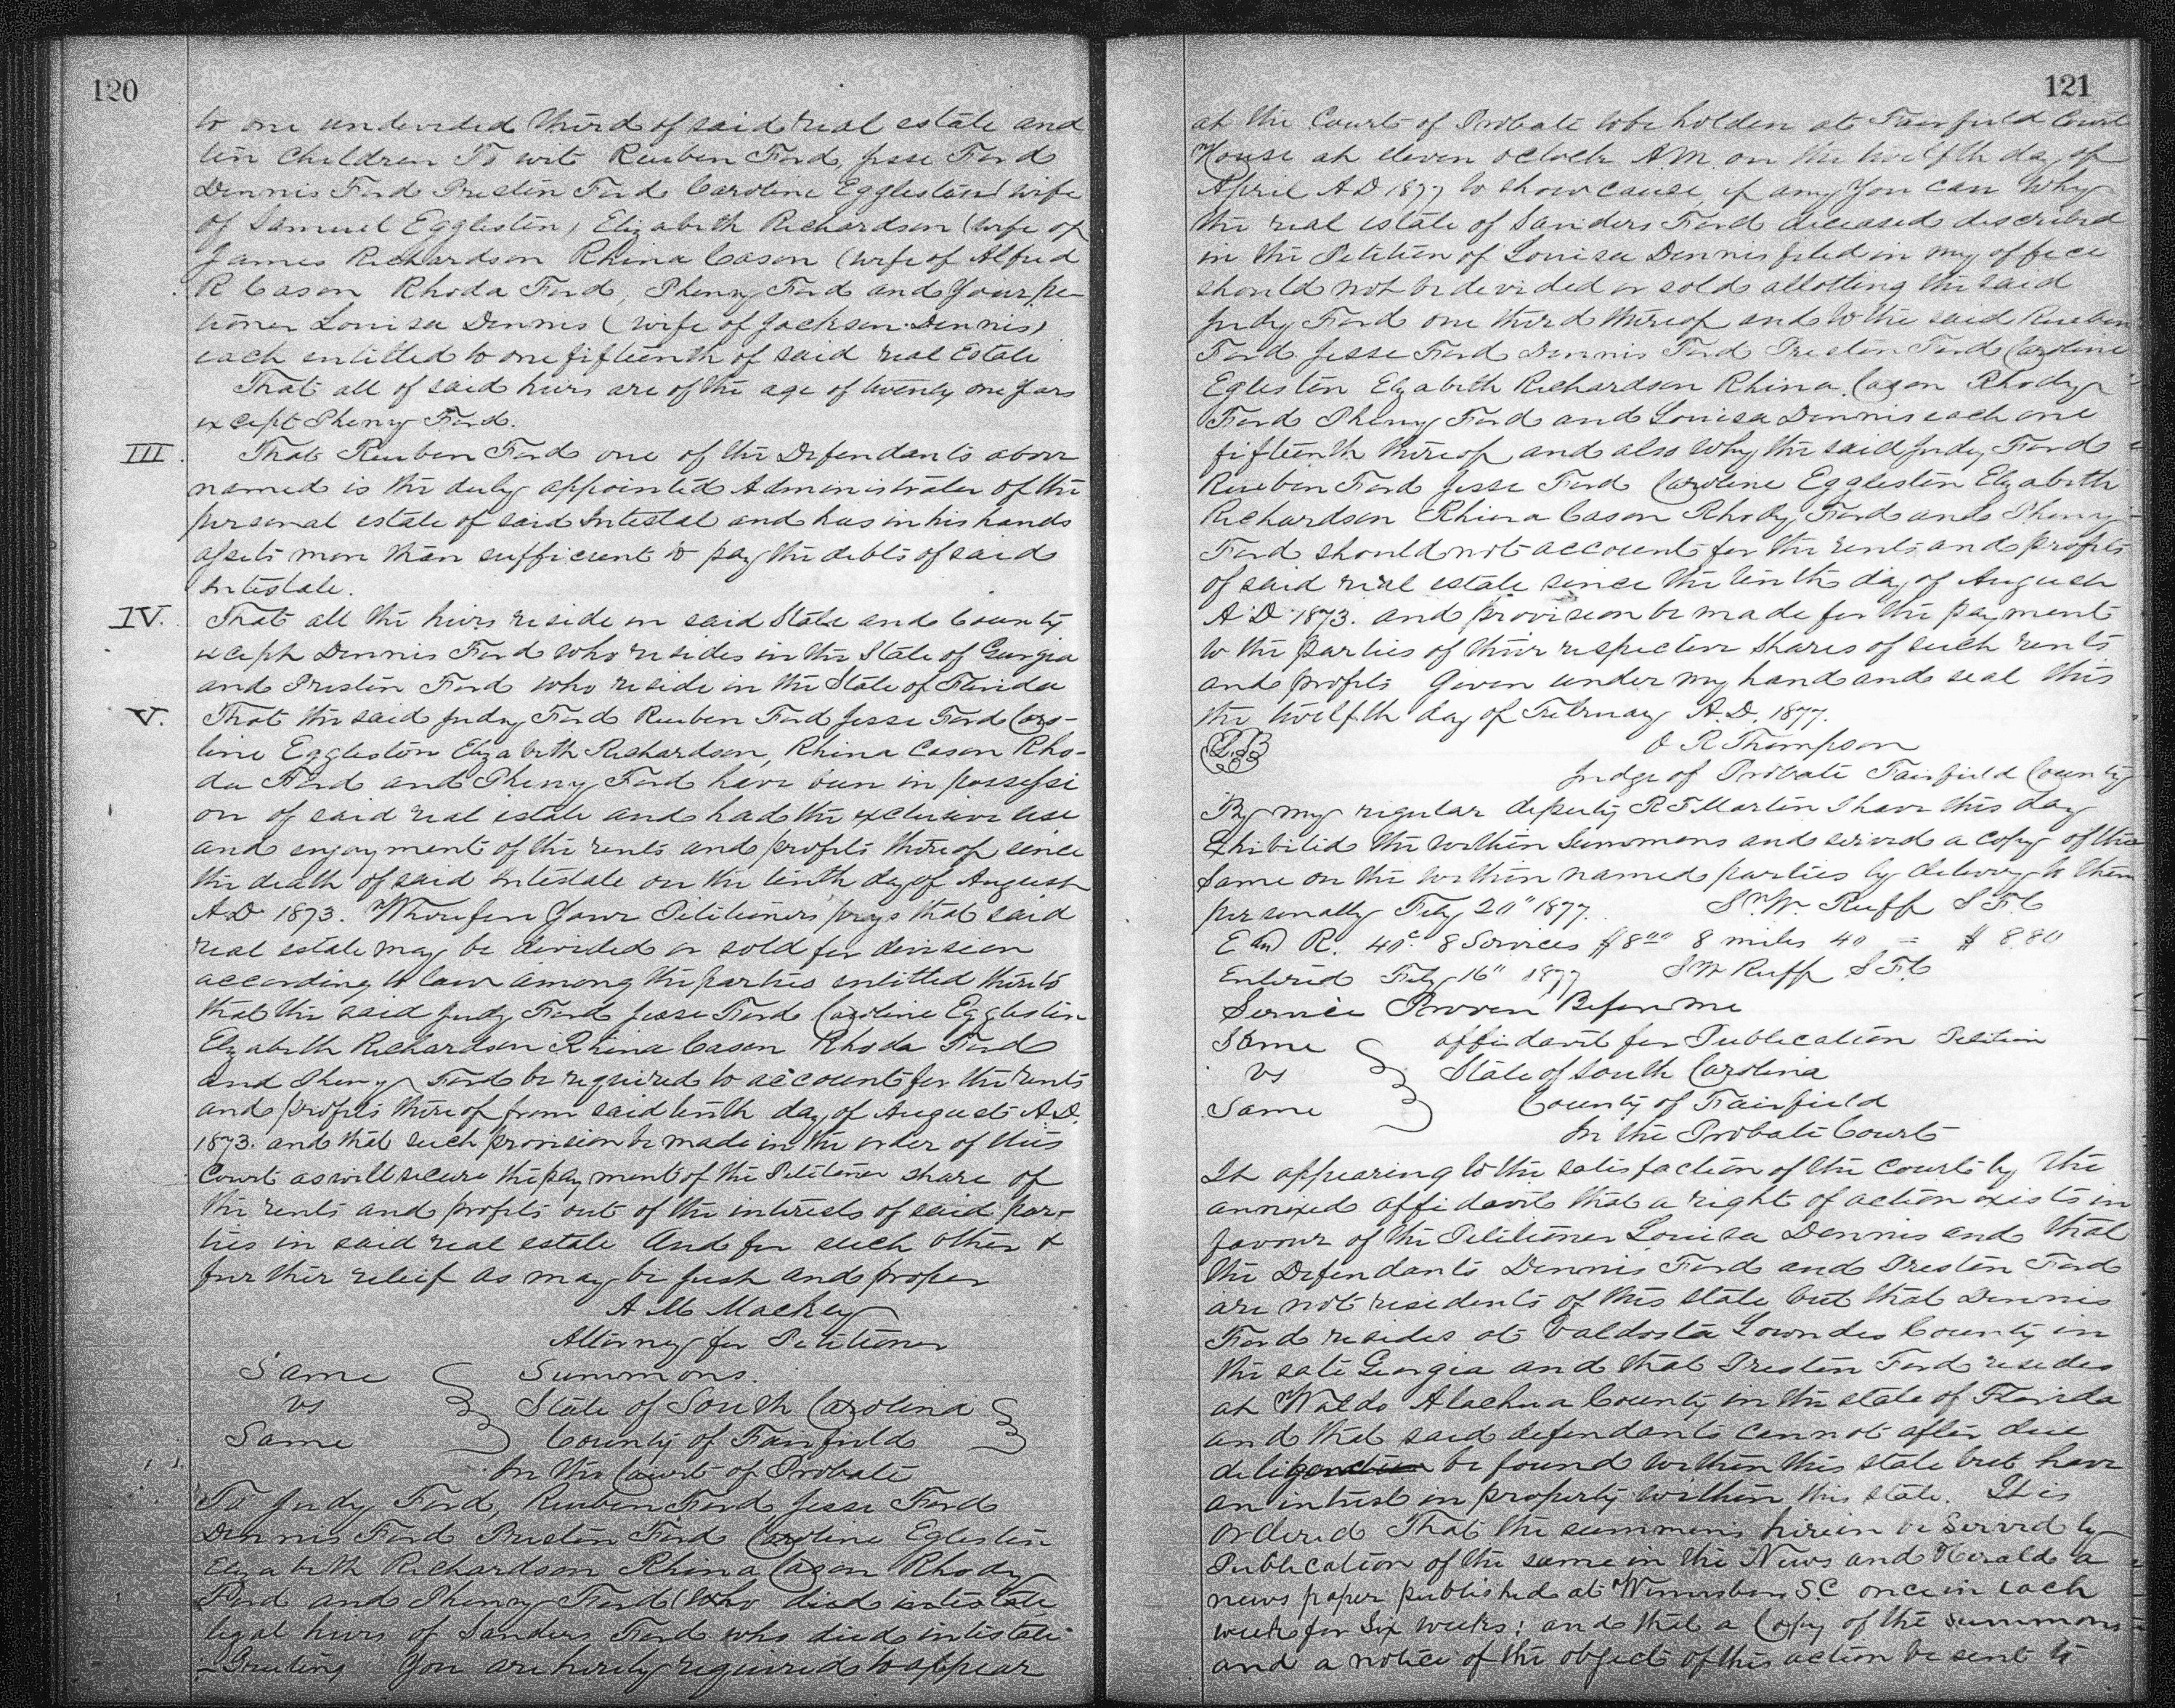 120
to one undivided third of said real estate and
ten Children To wit Reuben Ford, Jesse Ford
Dennis Ford Preston Ford Caroline Eggleston (wife
of Samuel Eggleston) Elizabeth Richardson (wife of
James Richardson Rhina Cason (wife of Alfred
R Cason Rhoda Ford, Pheny Ford and your pe-
tioner Louisa Dennis (wife of Jackson Dennis)
each entitled to one fifteenth of said real Estate
That all of said heirs are of the age of twenty one years
except Pheny Ford.
III. That Reuben Ford one of the Defendants above
named is the duly appointed Administrator of the
personal estate of said Intestat and has in his hands
assets more than sufficient to pay the debts of said
Intestate.
IV. That all the heirs reside in said State and County
except Dennis Ford who resides in the State of Georgia
and Preston Ford who reside in the State of Florida
V. That the said Judy Ford Reuben Ford Jesse Ford Caro-
line Eggleston Elizabeth Richardson, Rhina Cason Rho-
da Ford and Pheny Ford have been in possessi
on of said real estate and had the exclusive use
and enjoyment of the rents and profits thereof since
the death of said Intestate on the tenth day of August
A.D. 1873. Wherefore your Petitioners prays that said
real estate may be divided or sold for division
according to law among the parties entitled thereto
that the said Judy Ford Jesse Ford Caroline Eggleston
Elizabeth Richardson Rhina Cason Rhoda Ford
and Pheny Ford be required to account for the rents
and profits thereof from said tenth day of August A.D.
1873. and that such provision be made in the order of this
Court as will secure the payment of the Petitioner share of
the rents and profits out of the interests of said par-
ties in said real estate And for such other &
further relief as may be just and proper
A M Mackey
Attorney for Petitioner
Same Summons.
vs State of South Carolina
Same County of Fairfield
In the Court of Probate
To Judy Ford, Reuben Ford Jesse Ford
Dennis Ford Preston Ford Caroline Egleston
Elizabeth Richardson Rhina Cason Rhody
Ford and Pheny Ford (who died intestate
legal heirs of Sanders Ford who died intestate
Greeting You are hereby required to appear
121
at the Court of Probate to be holden at Fairfield Court
House at eleven oclock A.M. on the twelfth day of
April A.D 1877 to show cause, if any you can why
the real estate of Sanders Ford deceased described
in the Petition of Louisa Dennis filed in my office
should not be devided or sold allotting the said
Judy Ford one third thereof and to the said Rueben
Ford Jesse Ford Dennis Ford Preston Ford Caroline
Egleston Elizabeth Richardson Rhina Cason Rhody
Ford Pheny Ford and Louisa Dennis each one
fifteenth thereof and also why the said Judy Ford
Rueben Ford Jesse Ford Caroline Eggleston Elizabeth
Richardson Rhina Cason Rhody Ford and Pheny
Ford should not account for the rents and profits
of said real estate since the tenth day of August
A.D 1873. and provision be made for the payment
to the parties of their respective shares of such rents
and profits Given under my hand and seal this
the twelfth day of February A.D. 1877.
O R Thompson
Judge of Probate Fairfield County
By my regular deputy R F Martin I have this day
Exhibited the within Summons and served a copy of the
same on the within named parties by delivery to them
personally Feby 20" 1877. S. W. Ruff S F C
E and R. 40c 8 Services $8 00 8 miles 40 = $ 8.80
Entered Feby 16" 1877 S W Ruff S F C
Service Proven Before me
Same affidavit for Publication Petition
vs State of South Carolina
Same County of Fairfield
In the Probate Court
It appearing to the satisfaction of the Court by the
annexed affidavit that a right of action exists in
favour of the Petitioner Louisa Dennis and that
the Defendants Dennis Ford and Preston Ford
are not residents of this state but that Dennis
Ford resides at Valdosta Lowndes County in
the sate Georgia and that Preston Ford resides
at Waldo Alachua County in the state of Florida
and that said defendants cannot after due
be found within this state but have
an intrest in property within this state. It is
Ordered That the summons herein be served by
Publication of the same in the News and Herald a
news paper published at Winnsboro S.C. once in each
week for Six weeks; and that a Copy of the summons
and a notice of the object of this action be sent to